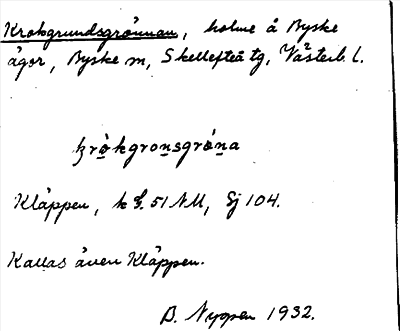 Krokgrundsgrönnan, holme å Byske
ägor, Byske sn, Skellefteå tg, Västerb. l.
krȯ̱kgronsgrȯna
Kläppen, k f. 51 NU, Sj 104.
Kallas även Kläppen.
B. Nygren 1932.